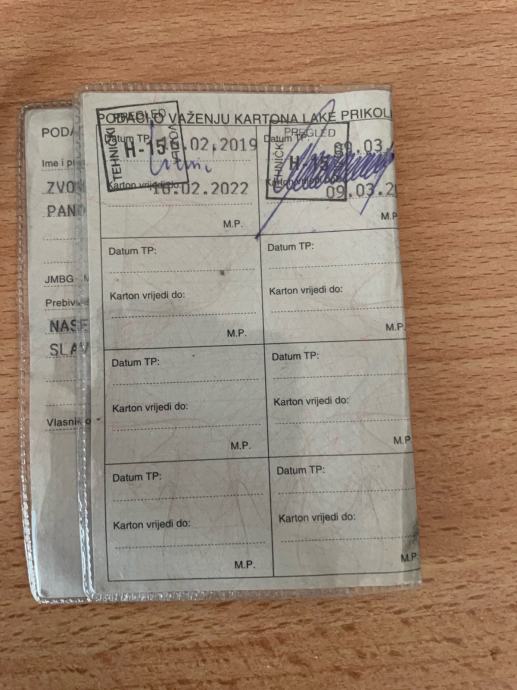 PODACI O VAŽENJU KARTONA LAKE PRIKOL
TEHNIČKI PREGLED H-15
Datum TP: .02.2019
Karton vrijedi do: .02.2022
M.P.
TEHNIČKI PREGLED
Datum TP: 09.03.
Karton vrijedi do: 09.03.2
M.P.
Datum TP:
Karton vrijedi do:
M.P.
Datum TP:
Karton vrijedi do:
M.P.
Datum TP:
Karton vrijedi do:
M.P.
Datum TP:
Karton vrijedi do:
M.P.
Datum TP:
Karton vrijedi do:
M.P.
Datum TP:
Karton vrijedi do:
M.P.
PODA
Ime i pr
ZVO
PAN
JMBG
Prebiv
NASE
SLAV
Vlasnik